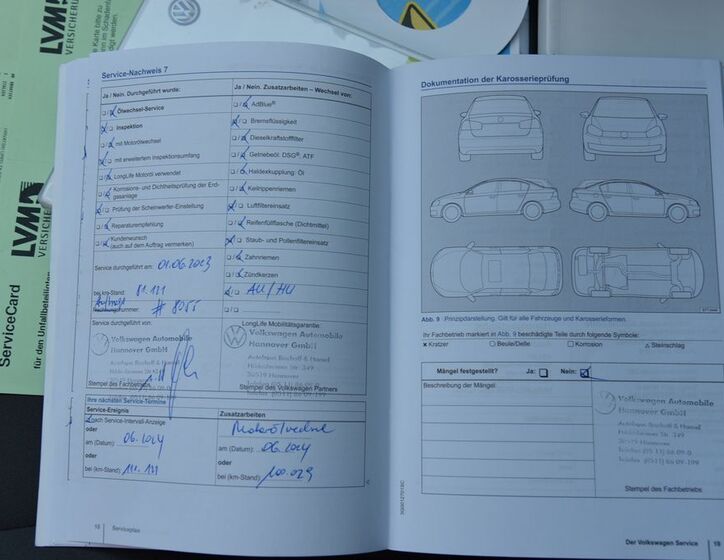 LVM
VERSICHERUNG
LVM
ServiceCard
für den Unfallbeteiligten
Service-Nachweis 7
Ja / Nein. Durchgeführt wurde:
Ölwechsel-Service
Inspektion
mit Motorölwechsel
mit erweitertem Inspektionsumfang
LongLife Motoröl verwendet
Korrosions- und Dichtheitsprüfung der Erd-
gasanlage
Prüfung der Scheinwerfer-Einstellung
Reparaturempfehlung
Kundenwunsch
(auch auf dem Auftrag vermerken)
Service durchgeführt am: 01.06.2023
bei km-Stand: 81.131
# 8055
Service durchgeführt von:
Volkswagen Automobile
Hannover GmbH
Stempel des Fachbetriebs
Ja / Nein. Zusatzarbeiten – Wechsel von:
AdBlue®
Bremsflüssigkeit
Dieselkraftstofffilter
Getriebeöl: DSG®, ATF
Haldexkupplung: Öl
Keilrippenriemen
Luftfiltereinsatz
Reifenfüllflasche (Dichtmittel)
Staub- und Pollenfiltereinsatz
Zahnriemen
Zündkerzen
AU/HU
LongLife Mobilitätsgarantie
Volkswagen Automobile
Hannover GmbH
Stempel des Volkswagen Partners
Ihre nächsten Service-Termine
Service-Ereignis
nach Service-Intervall-Anzeige
oder
am (Datum): 06.2024
oder
bei (km-Stand): 111.131
Zusatzarbeiten
am (Datum): 06.2024
oder
bei (km-Stand): 100.029
18 Serviceplan
Dokumentation der Karosserieprüfung
Abb. 9 Prinzipdarstellung. Gilt für alle Fahrzeuge und Karosserieformen.
Ihr Fachbetrieb markiert in Abb. 9 beschädigte Teile durch folgende Symbole:
x Kratzer ○ Beule/Delle □ Korrosion △ Steinschlag
Mängel festgestellt? Ja: Nein:
Beschreibung der Mängel:
Volkswagen Automobile
Hannover GmbH
Stempel des Fachbetriebs:
Der Volkswagen Service 19